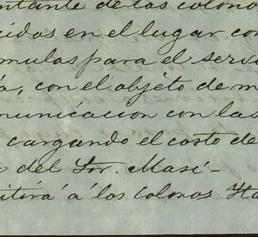 ntante de los colono
cidos en el lugar con
mulas para el serv
a, con el objeto de m
municacion con las
cargando el costo de
del Sor. Masi-
itirá á los colonos Ita